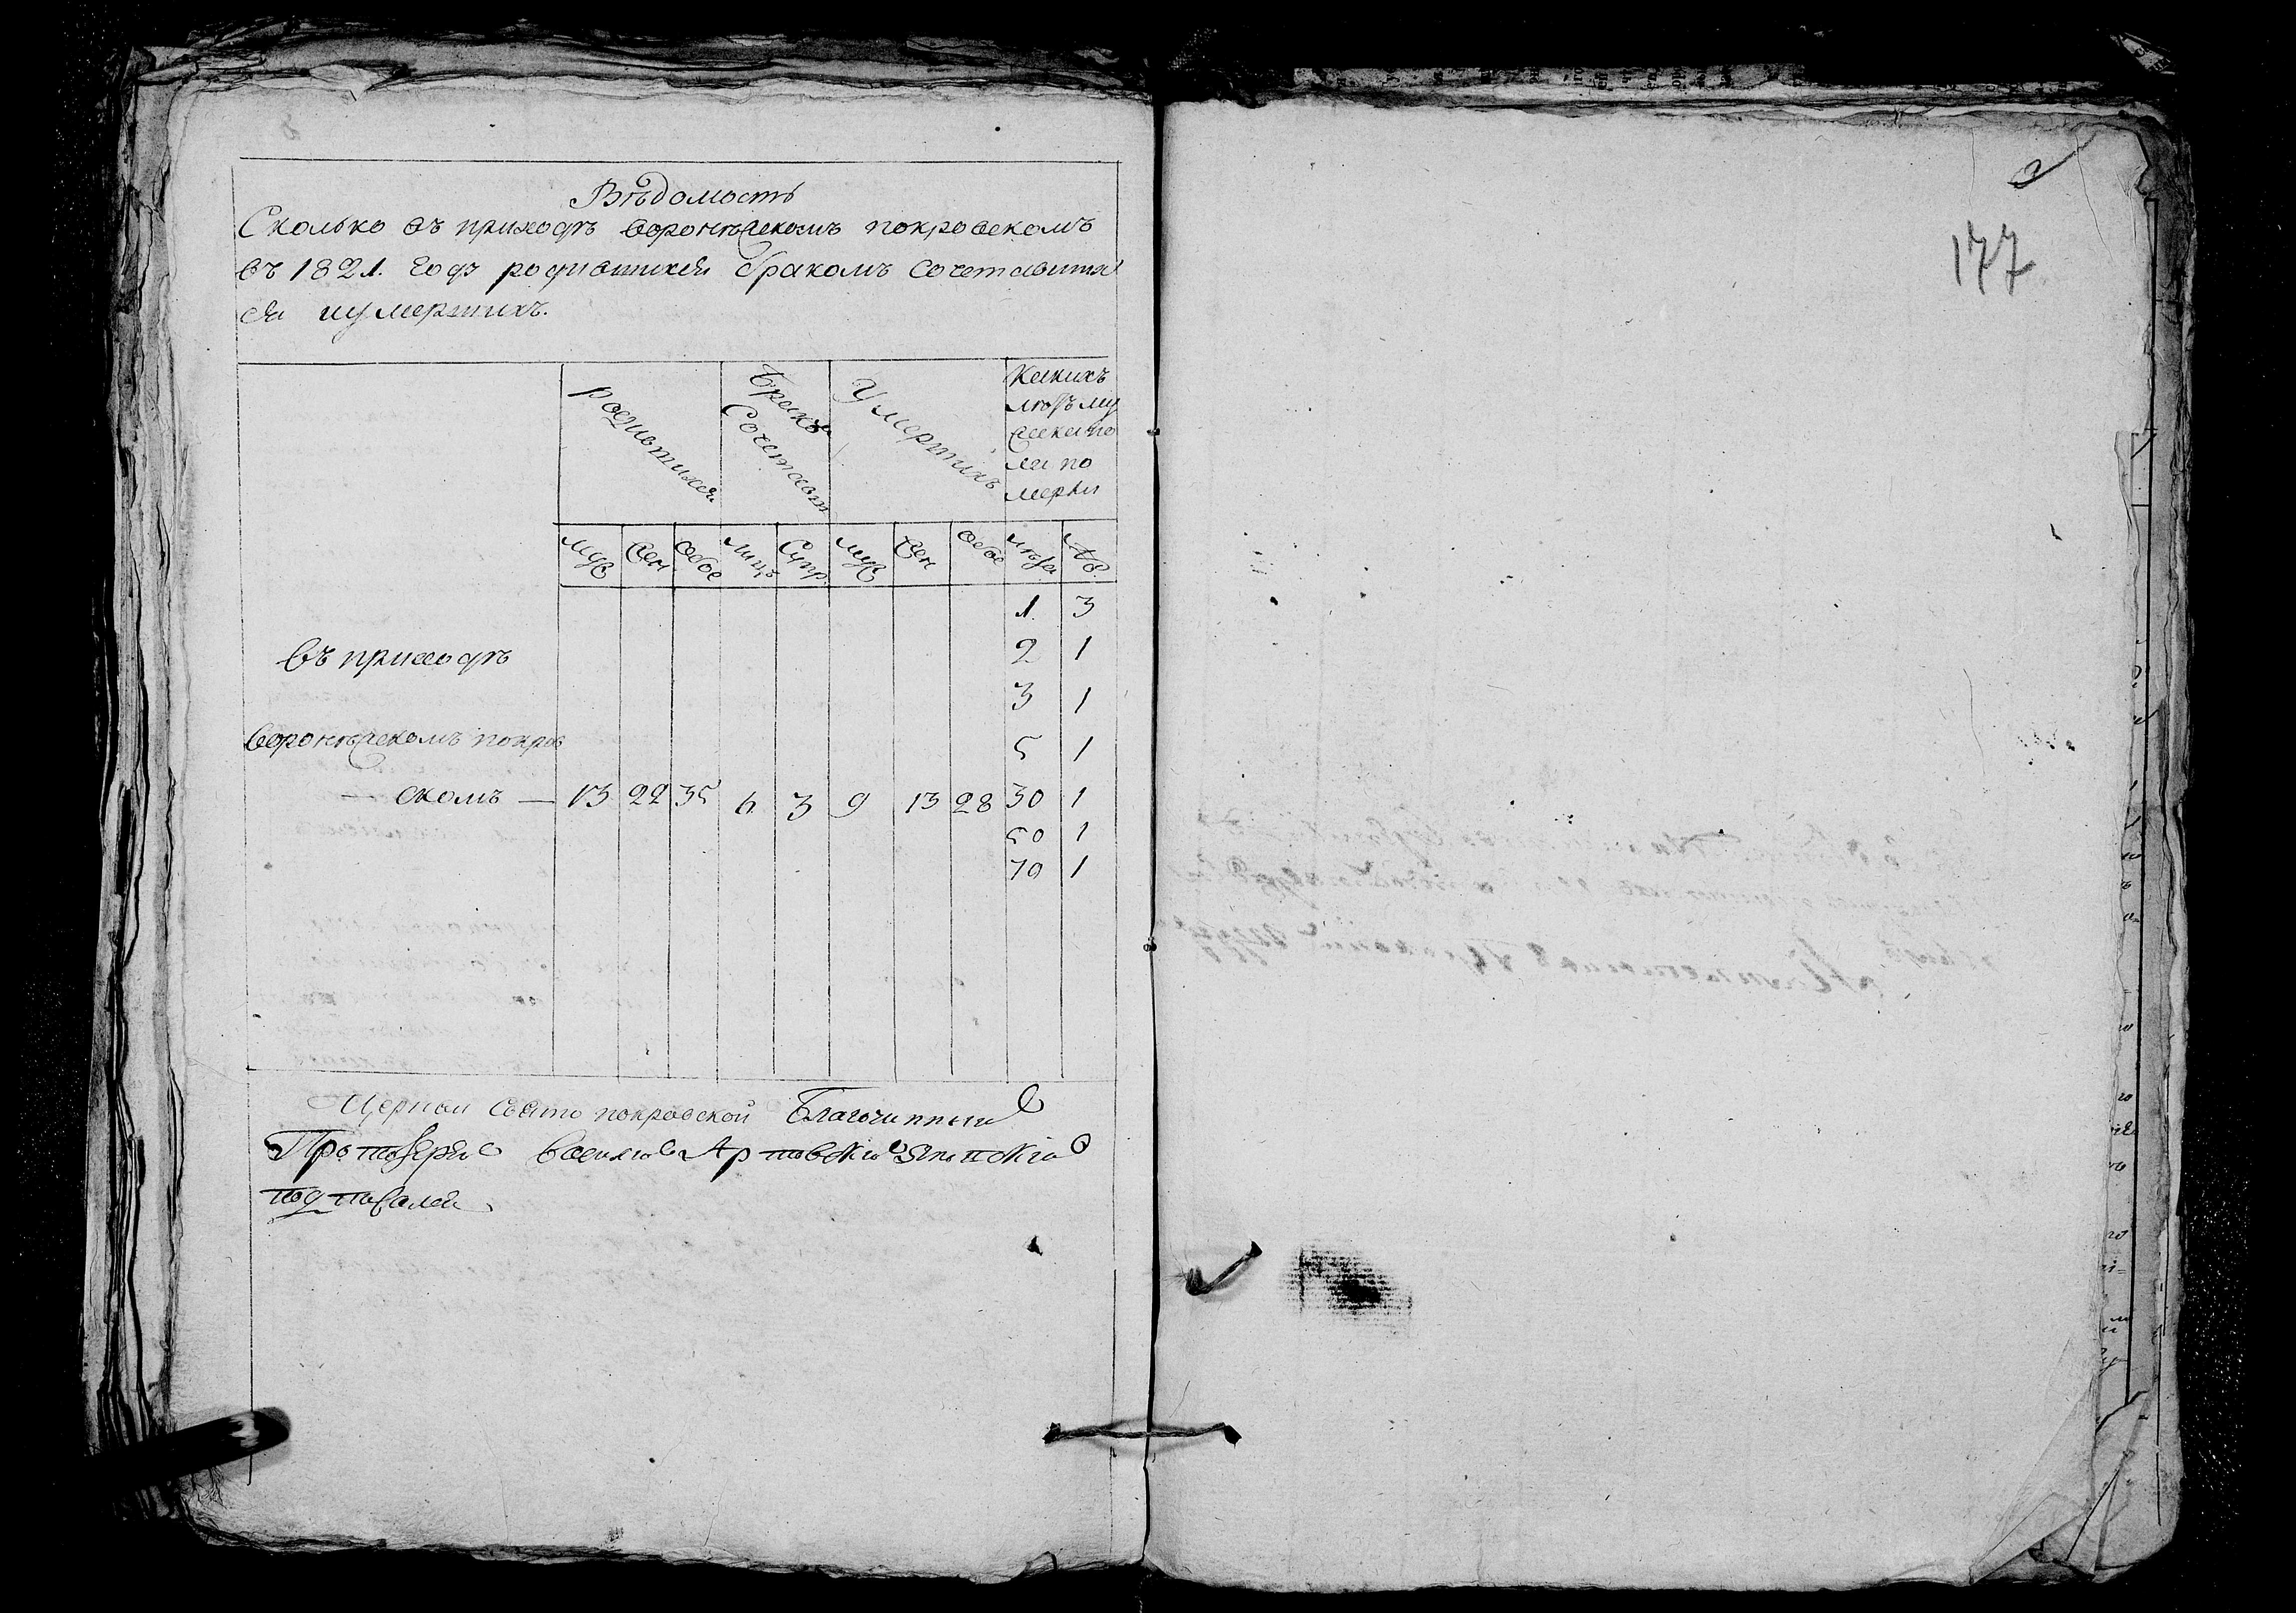 Вѣдомость
Сколько въ приходѣ воронѣжскомъ покровскомъ
въ 1821. годѣ родившихся бракомъ сочетавших
ся и умершихъ.
родившихся
Бракомъ Сочетавш
Умершихъ
Какихъ
лѣтъ му
жска по
ла по
мерли
муж
жен
обое
лицъ
Супр
муж
жен
обое
лѣта
чо.
1. 3
въ приходѣ 2 1
3 1
воронѣжскомъ покров 5 1
— скомъ — 13 22 35 6 3 9 13 28 30 1
50 1
70 1
Церкви Свято покровской Благочинный
Протоіерей Василій
подписался
177